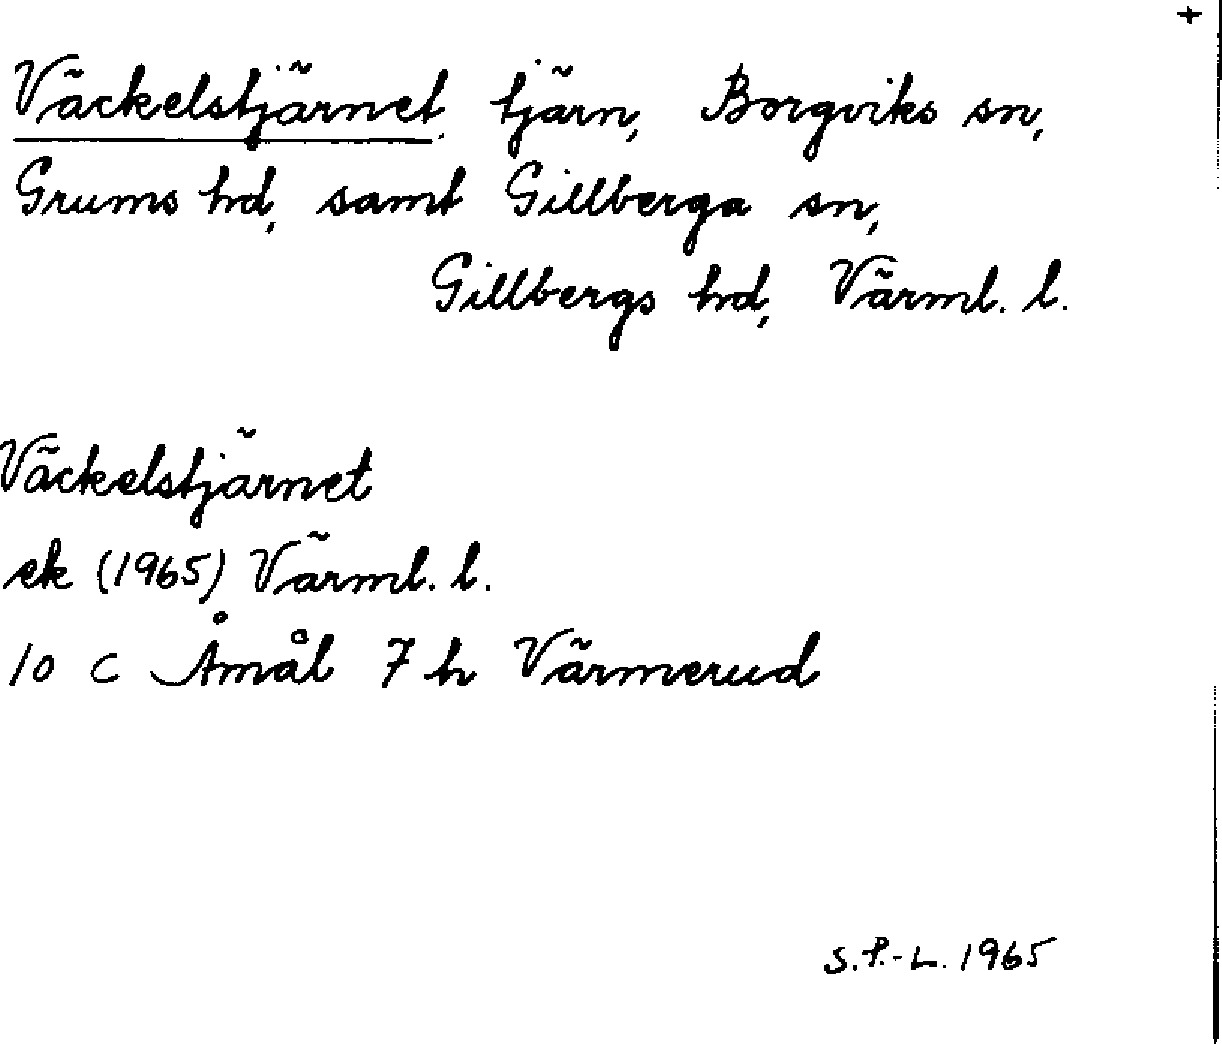 +
Väckelstjärnet. tjärn, Borgviks sn,
Grums hd, samt Gillberga sn,
Gillbergs hd, Värml. l.
Väckelstjärnet
ek (1965) Värml. l.
10 C Åmål 7 h Värmerud
S.P.-L. 1965